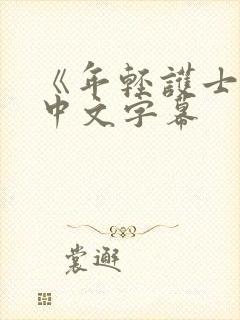 《年轻護士
中文字幕
裳邂